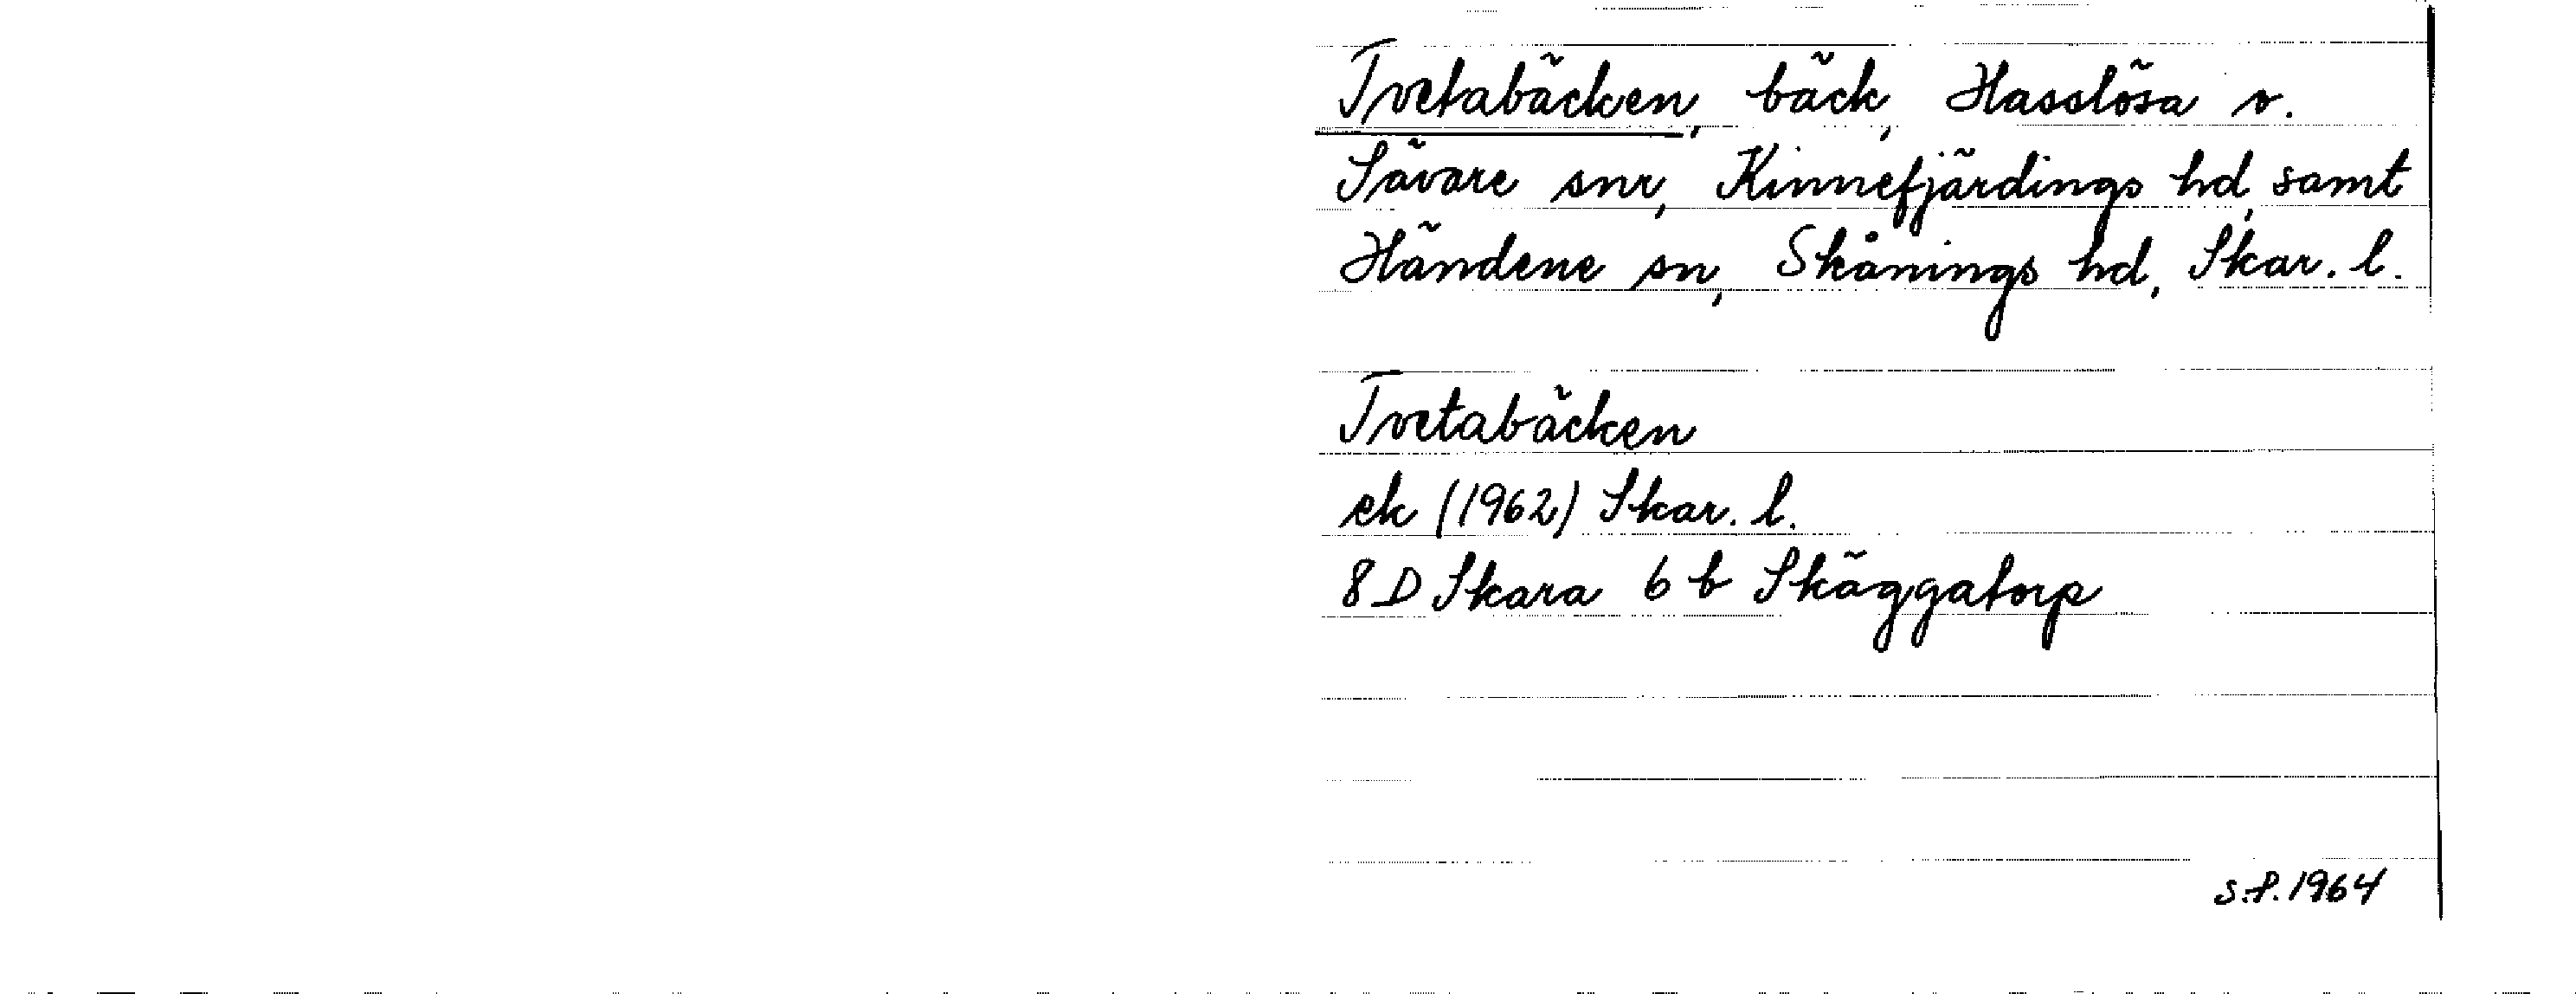 Tvetabäcken, bäck, Hasslösa o.
Sävare snr, Kinnefjärdings hd, samt
Händene sn, Skånings hd, Skar. l.
Tvetabäcken
ek (1962) Skar. l.
8 D Skara 6 b Skäggatorp
S.P. 1964